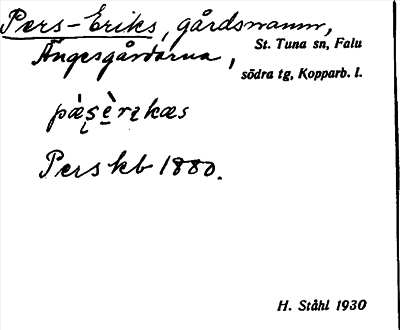 Pers-Eriks, gårdsnamn,
Ängesgårdarna,
St. Tuna sn, Falu
södra tg, Kopparb. l.
Pers kb 1880.
H. Ståhl 1930